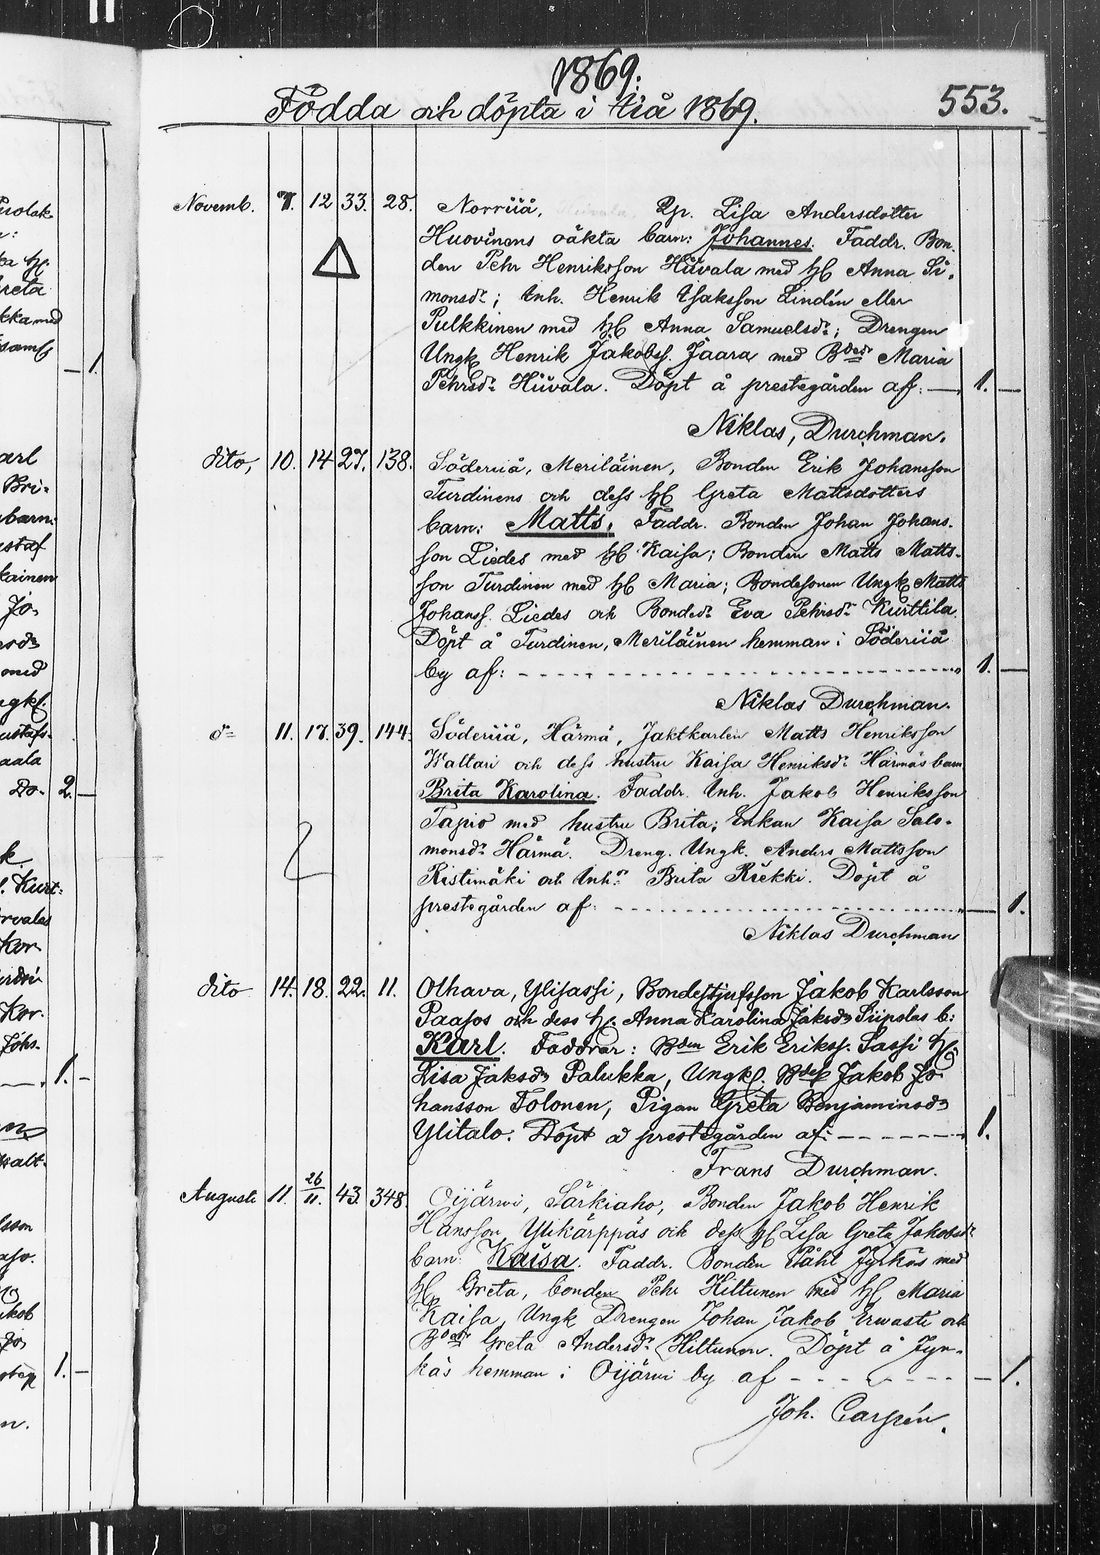 1869.
Födda och döpta i Iiå 1869.
553.
Novemb. 7. 12 33. 28. Norriiå, Pp. Lisa Andersdotter
Huovinens oäkta barn: Johannes. Faddr. Bon-
den Pehr Henriksson Hiivala med H. Anna Si-
monsdr; Inh. Henrik Isaksson Lindén eller
Pulkkinen med H. Anna Samuelsdr; Drengen
Ungk. Henrik Jakobss. Jaara med Bdedr Maria
Pehrsdr Hiivala. Döpt å prestegården af: 1.
Niklas, Durchman.
dito, 10. 14 27. 138. Söderiiå, Meriläinen, Bonden Erik Johansson
Turdinens och dess H. Greta Mattsdotters
barn: Matts. Faddr. Bonden Johan Johans-
son Liedes med H. Kaisa; Bonden Matts Matts-
son Turdinen med H. Maria; Bondesonen Ungk. Matts
Johanss. Liedes och Bondedr Eva Pehrsdr Kurttila.
Döpt å Turdinen, Meriläinen hemman i Söderiiå
by af: 1.
Niklas Durchman.
do 11. 17. 39. 144. Söderiiå, Härmä, Jaktkarlen Matts Henriksson
Waltari och dess hustru Kaisa Henriksdr Härmäs barn
Brita Karolina. Faddr. Inh. Jakob Henriksson
Tapio med hustru Brita; Enkan Kaisa Salo-
monsdr Härmä. Dreng. Ungk. Anders Mattsson
Ristimäki och Inh. Brita Riekki. Döpt å
prestegården af: 1.
Niklas Durchman
dito 14. 18. 22. 11. Olhava, Ylisassi, Bondestjufsson Jakob Karlsson
Paasos och dess H. Anna Karolina Jaksdr Siipolas b:
Karl. Faddrar: Bden Erik Erikss. Sassi H.
Lisa Jaksdr Palukka, Ungk. Bdes Jakob Jo-
hansson Tolonen, Pigan Greta Benjaminsdr
Ylitalo. Döpt å prestegården af: 1.
Frans Durchman.
Augusti 11 26/11. 43. 348. Oijärwi, Särkiaho, Bonden Jakob Henrik
Hansson Ylikärppäs och dess H. Lisa Greta Jakobsdr
barn Kaisa. Faddr. Bonden Påhl Jyrkäs med
H. Greta, bonden Pehr Hiltunen med H. Maria
Kaisa, Ungk Drengen Johan Jakob Erwasti och
Bdedr Greta Andersdr Hiltunen. Döpt å Jyr-
käs hemman i Oijärwi by af 1.
Joh. Carpén.